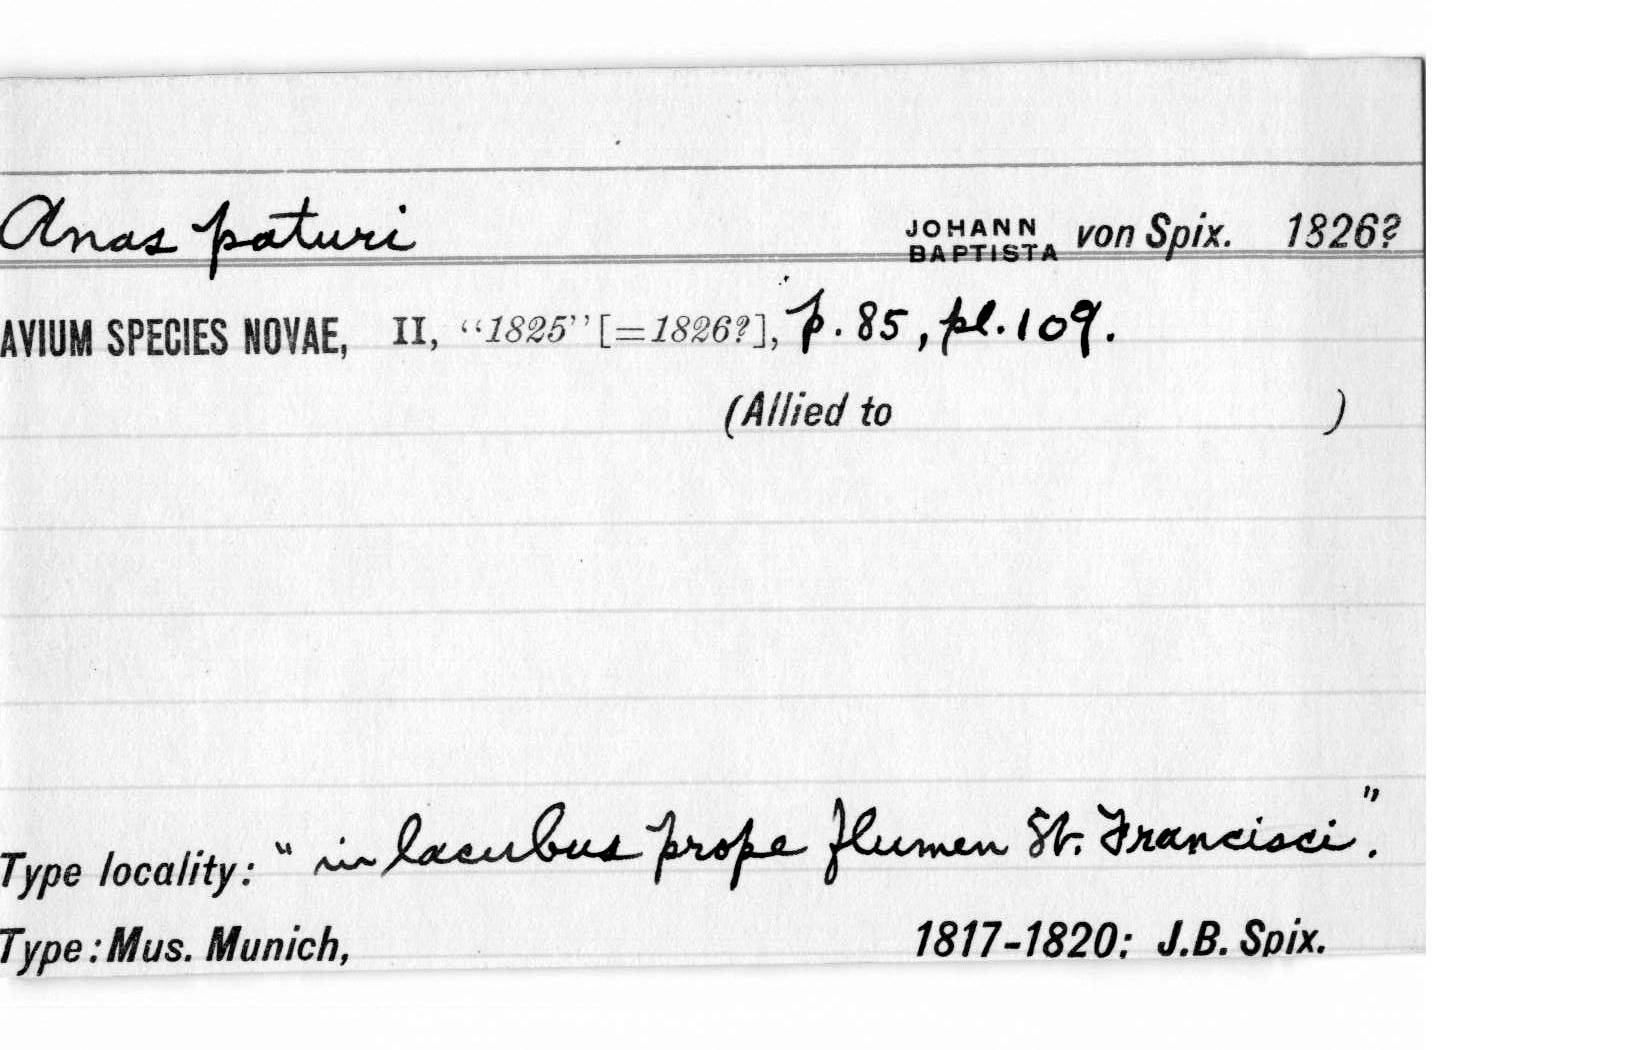 Anas paturi JOHANN BAPTISTA von Spix. 1826?
AVIUM SPECIES NOVAE, II, "1825" [=1826?], p. 85, pl. 109.
(Allied to )
Type locality: "in lacubus prope flumen St. Francisci".
Type: Mus. Munich, 1817-1820: J.B. Spix.